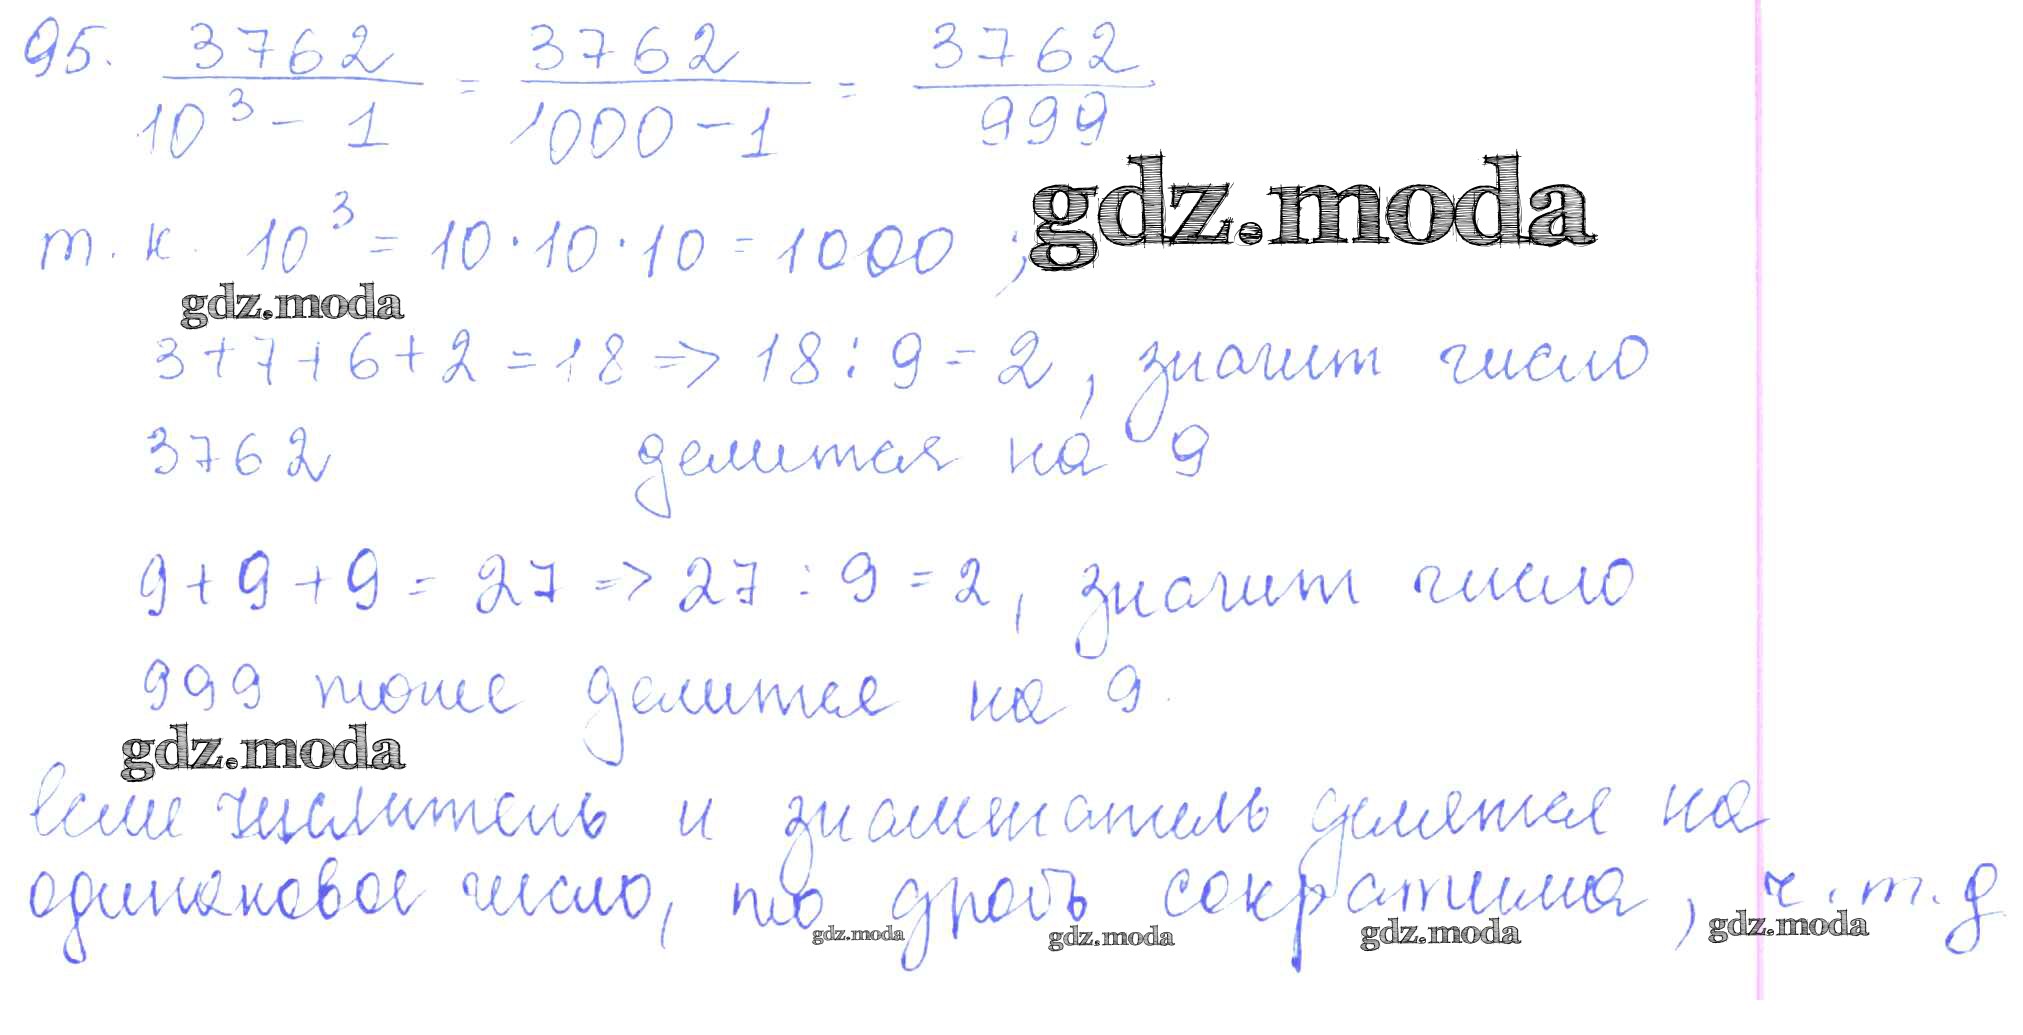 95. 3762/10³ - 1 = 3762/1000 - 1 = 3762/999
gdz.moda
т. к. 10³ = 10 · 10 · 10 = 1000 ;
gdz.moda
3 + 7 + 6 + 2 = 18 => 18 : 9 = 2, значит число
3762 делится на 9
9 + 9 + 9 = 27 => 27 : 9 = 2, значит число
999 тоже делится на 9.
gdz.moda
если числитель и знаменатель делятся на
одинаковое число, то дробь сократима, ч. т. д
gdz.moda gdz.moda gdz.moda gdz.moda